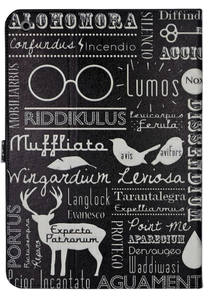 ALOHOMORA
SILENCIO
Diffind
Confundus
Incendio
ACCIO
MOBILIARBUS
Lumos
Nox
RIDDIKULUS
DISSENDIUM
Ferula
Muffliato
avis
avifors
Wingardium Leviosa
Langlock
Evanesco
Tarantalegra
Expelliarmus
PORTUS
Reparo
Expecto
Patronum
PROTEGO
Point Me
APARECIUM
Densaugeo
Waddiwasi
Prior Incantato
AGUAMENTI